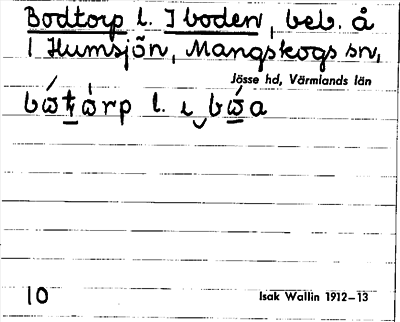 Bodtorp l. I boden, beb. å
1 Humsjön, Mangskogs sn,
Jösse hd, Värmlands län
10
Isak Wallin 1912–13